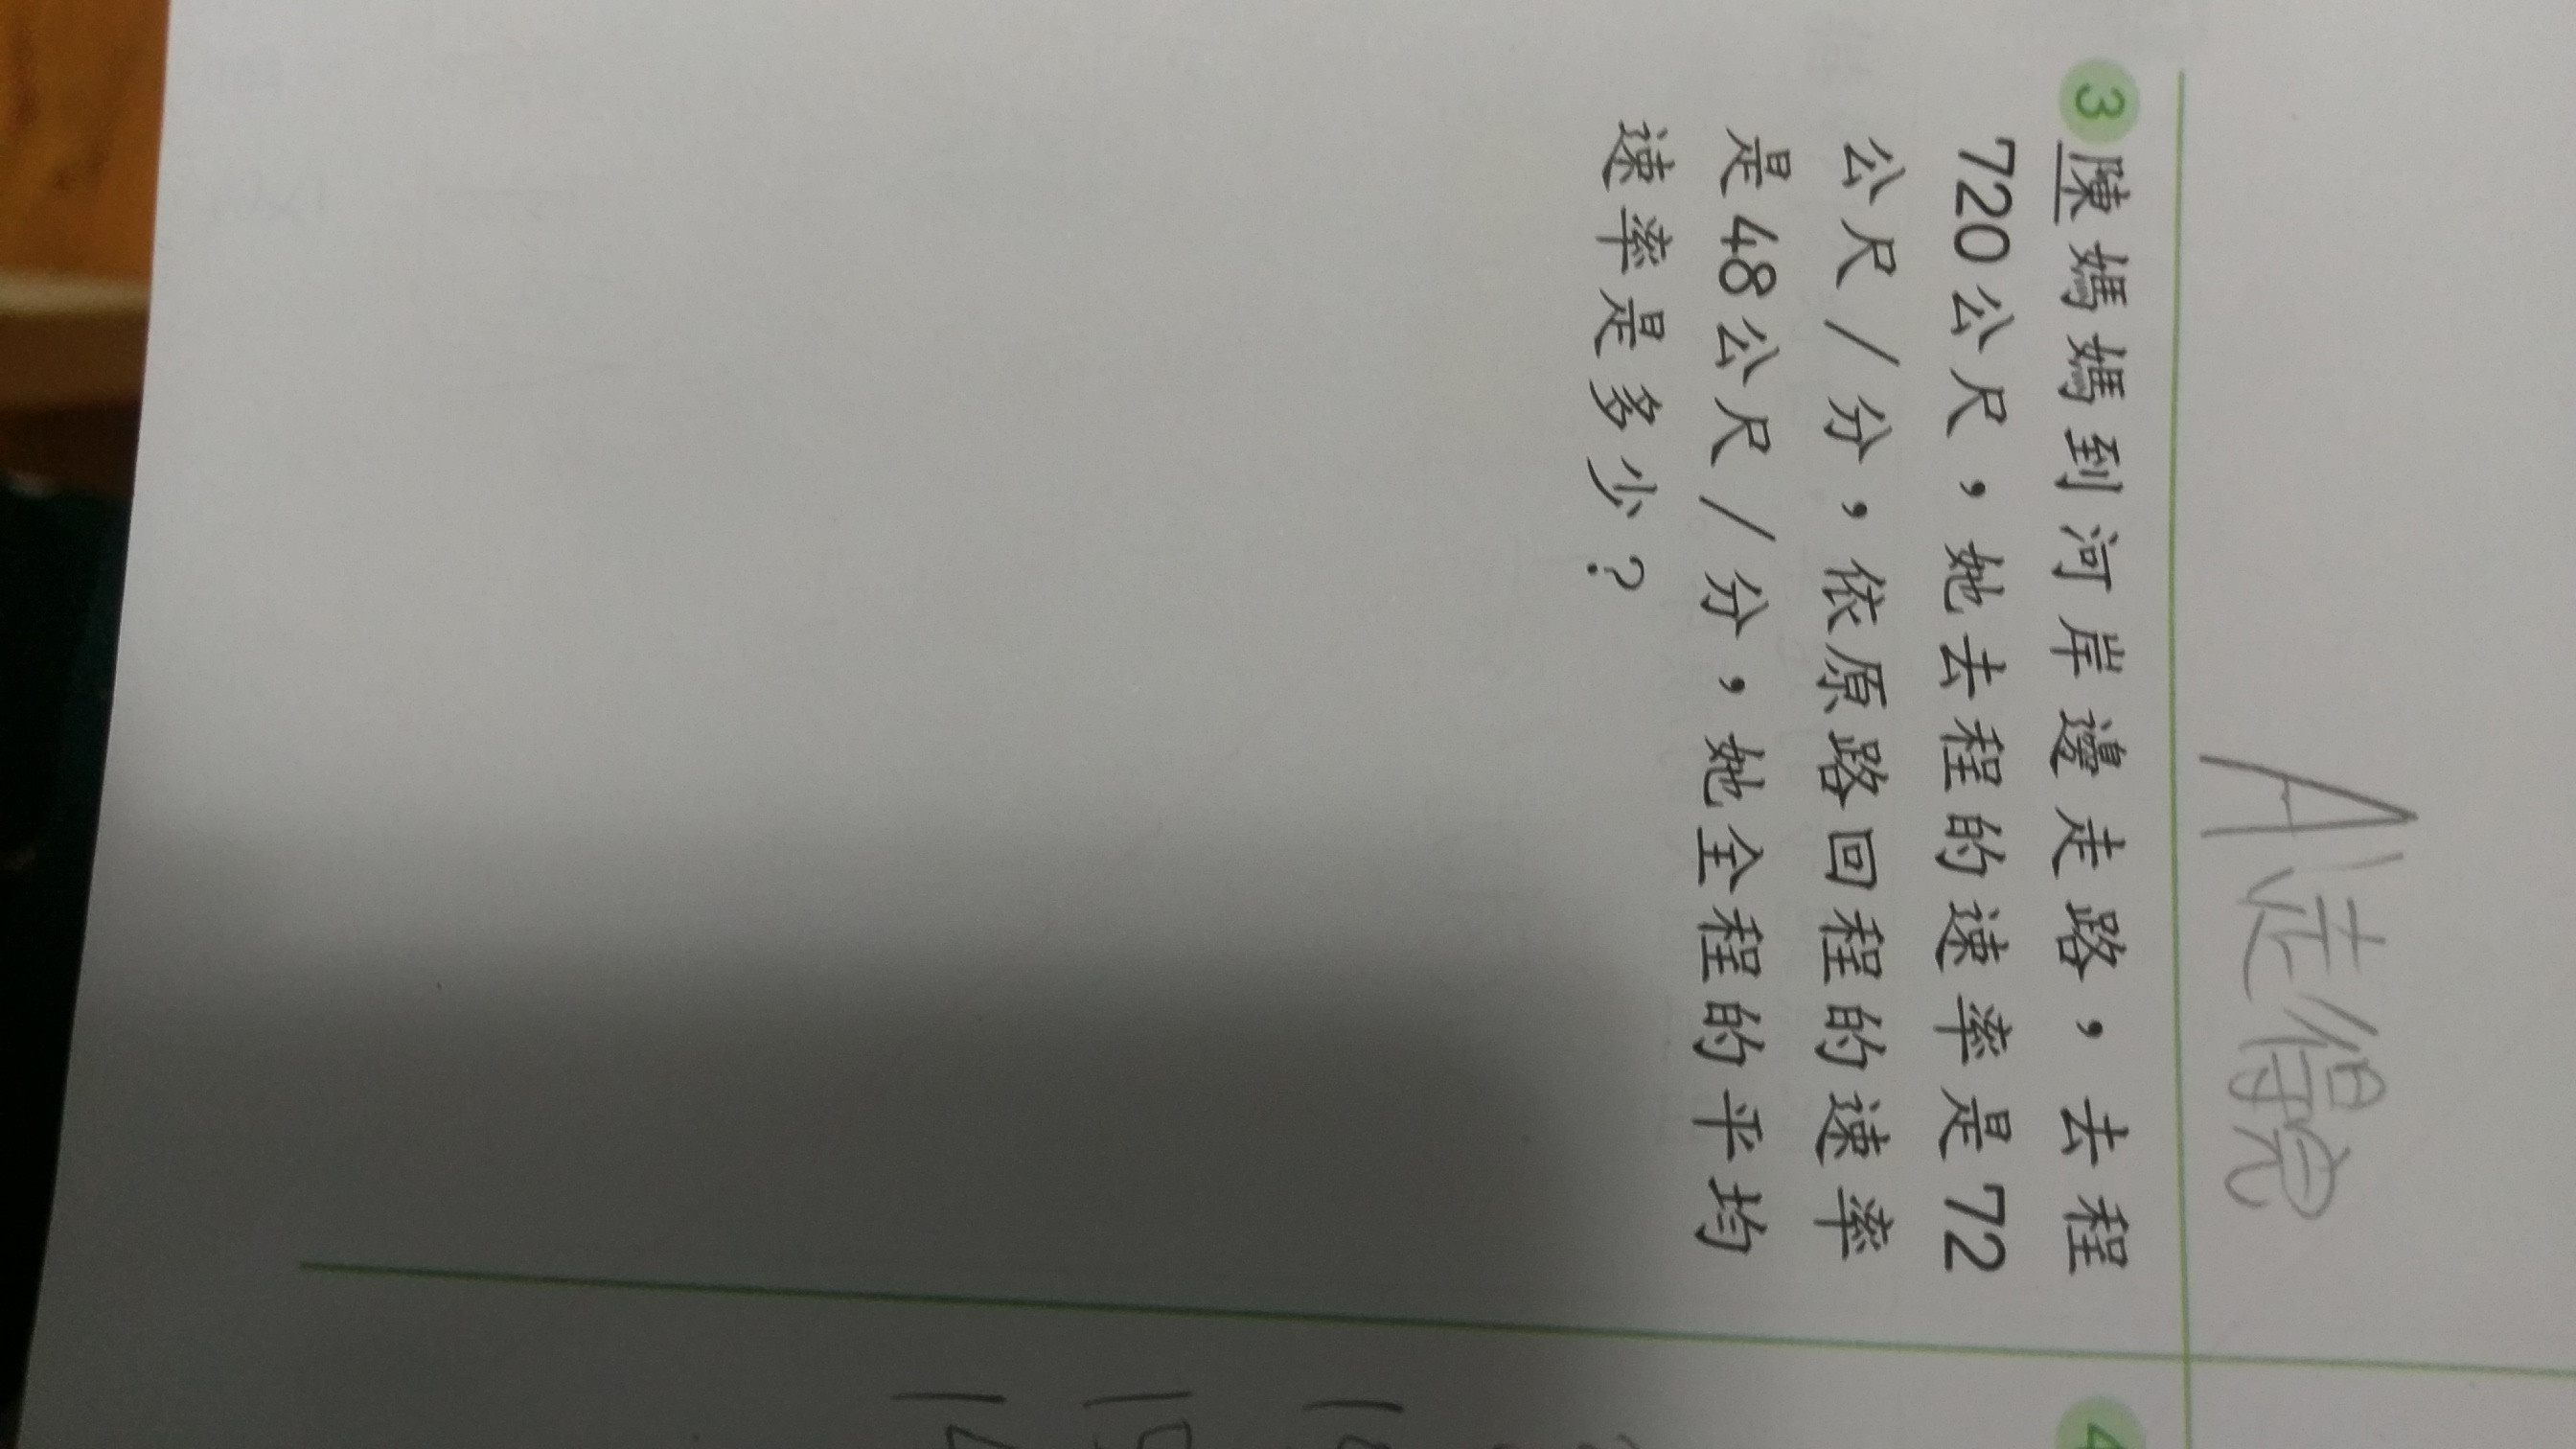 A：走得完
3 陳媽媽到河岸邊走路，去程
720公尺，她去程的速率是72
公尺/分，依原路回程的速率
是48公尺/分，她全程的平均
速率是多少？
4